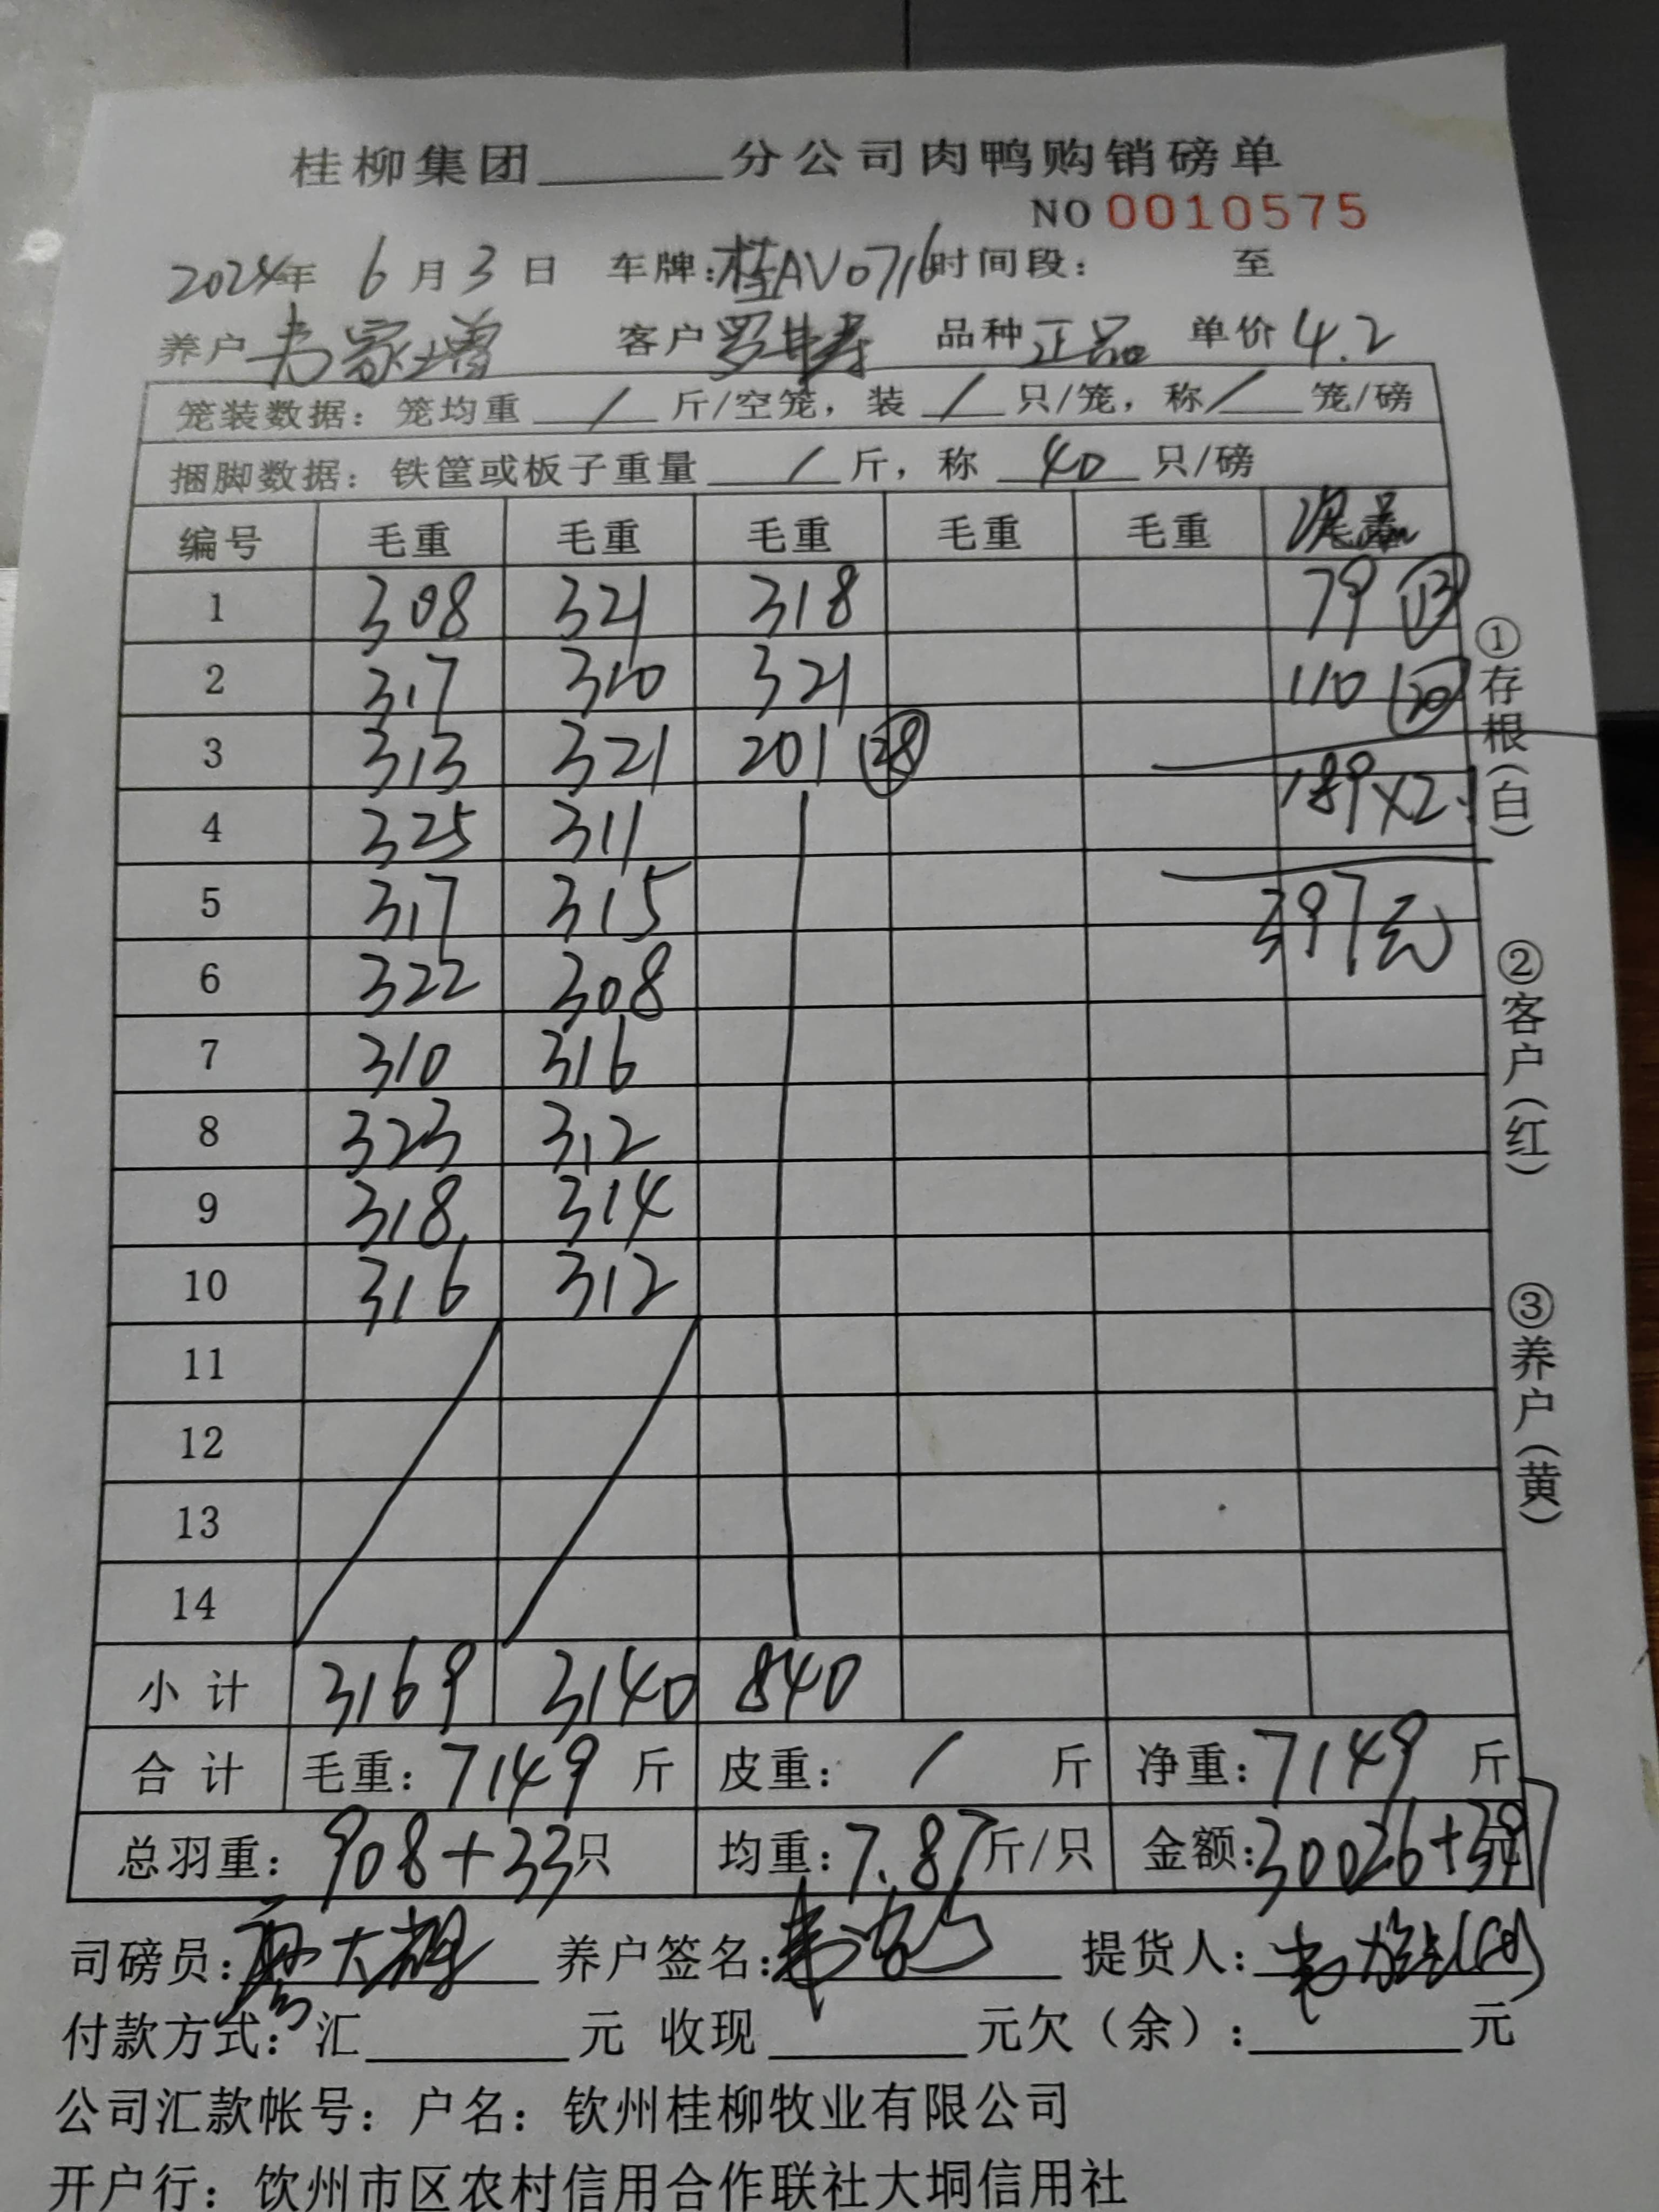 桂柳集团______分公司肉鸭购销磅单
NO 0010575
2024年 6月3日 车牌:桂AV0716 时间段: 至
养户 韦家增 客户 罗 品种 正品 单价 4.2
笼装数据: 笼均重 / 斤/空笼, 装 / 只/笼, 称 / 笼/磅
捆脚数据: 铁筐或板子重量 / 斤, 称 40 只/磅
编号 毛重 毛重 毛重 毛重 毛重
1 308 321 318 79 13
2 317 310 321 110 20
3 313 321 201 28
4 325 311 189×2.1
5 317 315 397元
6 322 308
7 310 316
8 323 312
9 318 314
10 316 312
11
12
13
14
小计 3169 3140 840
合计 毛重: 7149 斤 皮重: / 斤 净重: 7149 斤
总羽重: 908+33只 均重: 7.87斤/只 金额: 30026+397
司磅员: 养户签名: 提货人:
付款方式: 汇______元 收现______元欠(余):______元
公司汇款帐号: 户名: 钦州桂柳牧业有限公司
开户行: 钦州市区农村信用合作联社大垌信用社
①存根(白)
②客户(红)
③养户(黄)